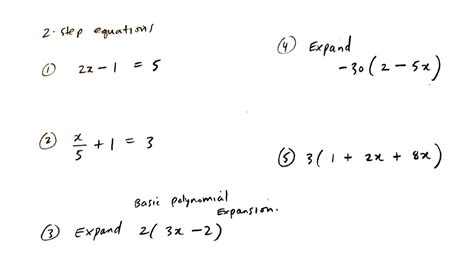 2-step equations
① 2x - 1 = 5
② x/5 + 1 = 3
Basic polynomial
Expansion.
③ Expand 2( 3x - 2)
④ Expand
-30 ( 2 - 5x )
⑤ 3 ( 1 + 2x + 8x )